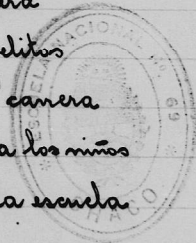 elitos
carrera
a los niños
a escuela
ESCUELA NACIONAL N. 69
CHACO